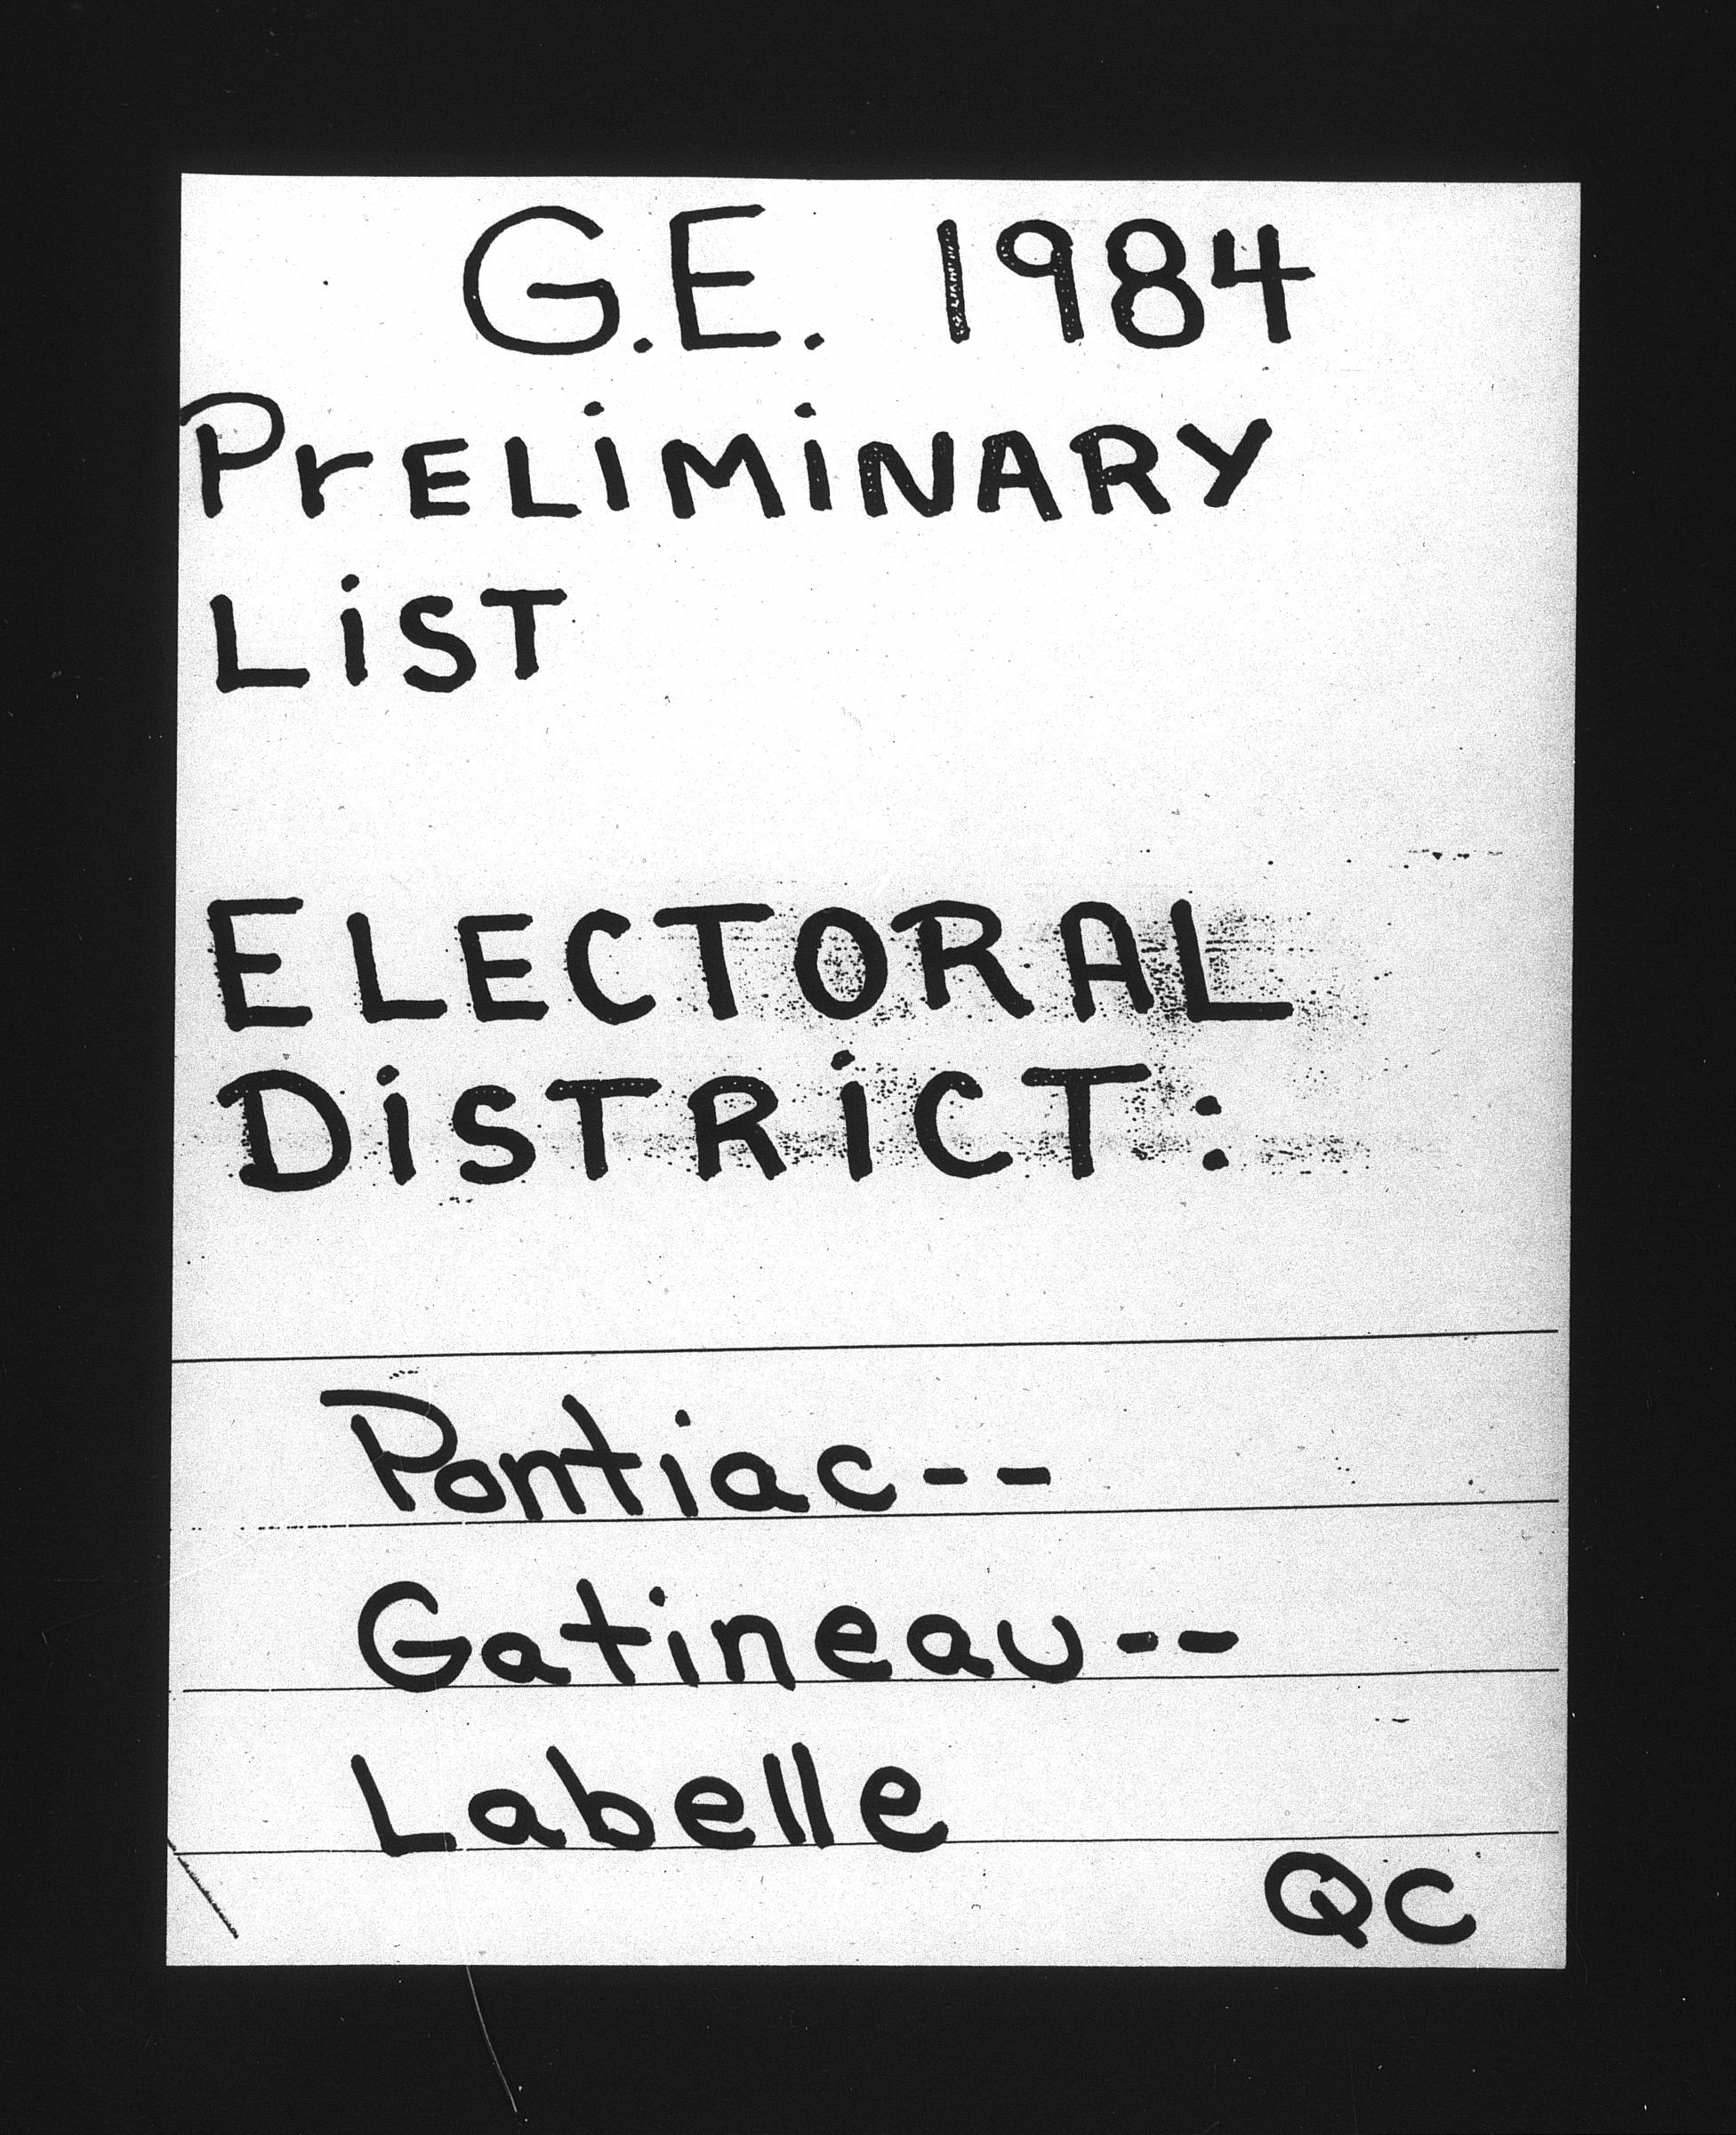 G.E. 1984
PRELIMINARY
LIST
ELECTORAL
DISTRICT:
Pontiac--
Gatineau--
Labelle
QC